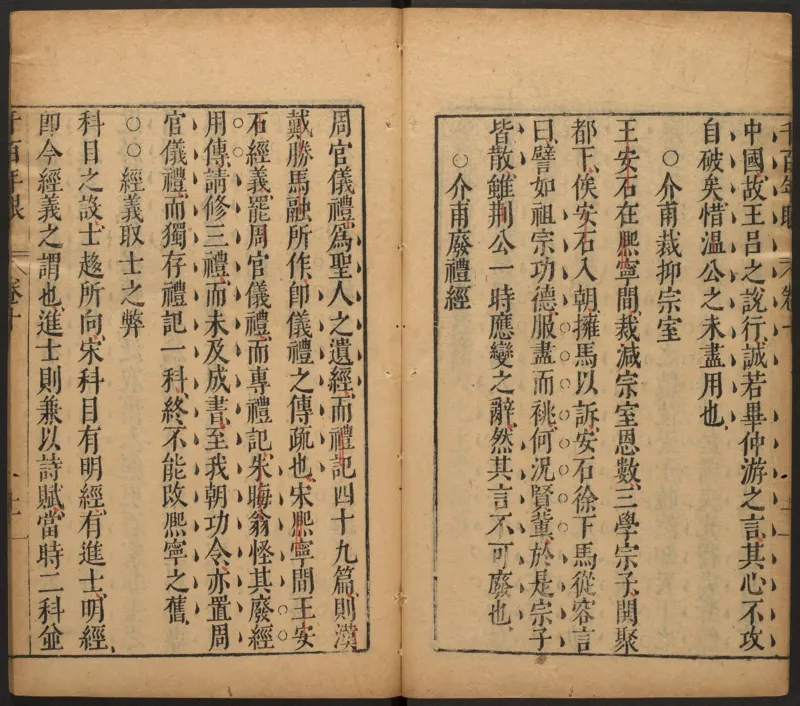 中國故王呂之說行誠若畢仲游之言其心不攻
自破矣惜溫公之未盡用也
○介甫裁抑宗室
王安石在熈寧間裁减宗室恩數三學宗子閧聚
都下俟安石入朝擁馬以訴安石徐下馬從容言
曰譬如祖宗功德服盡而祧何況賢輩於是宗子
皆散雖荆公一時應變之辭然其言不可廢也
○介甫廢禮經
周官儀禮爲聖人之遺經而禮記四十九篇則漢
戴勝馬融所作卽儀禮之傳疏也宋熈寧間王安
石經義罷周官儀禮而專禮記朱晦翁怪其廢經
用傳請修三禮而未及成書至我朝功令亦置周
官儀禮而獨存禮記一科終不能改熈寧之舊
○○經義取士之弊
科目之設士趨所向宋科目有明經有進士明經
卽今經義之謂也進士則兼以詩賦當時二科並
千百年眼 卷十